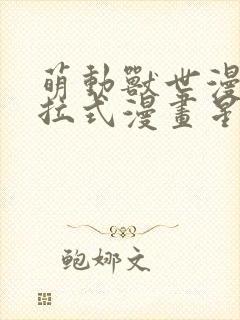 萌動獸世漫
拉式漫畫星
鲍娜文